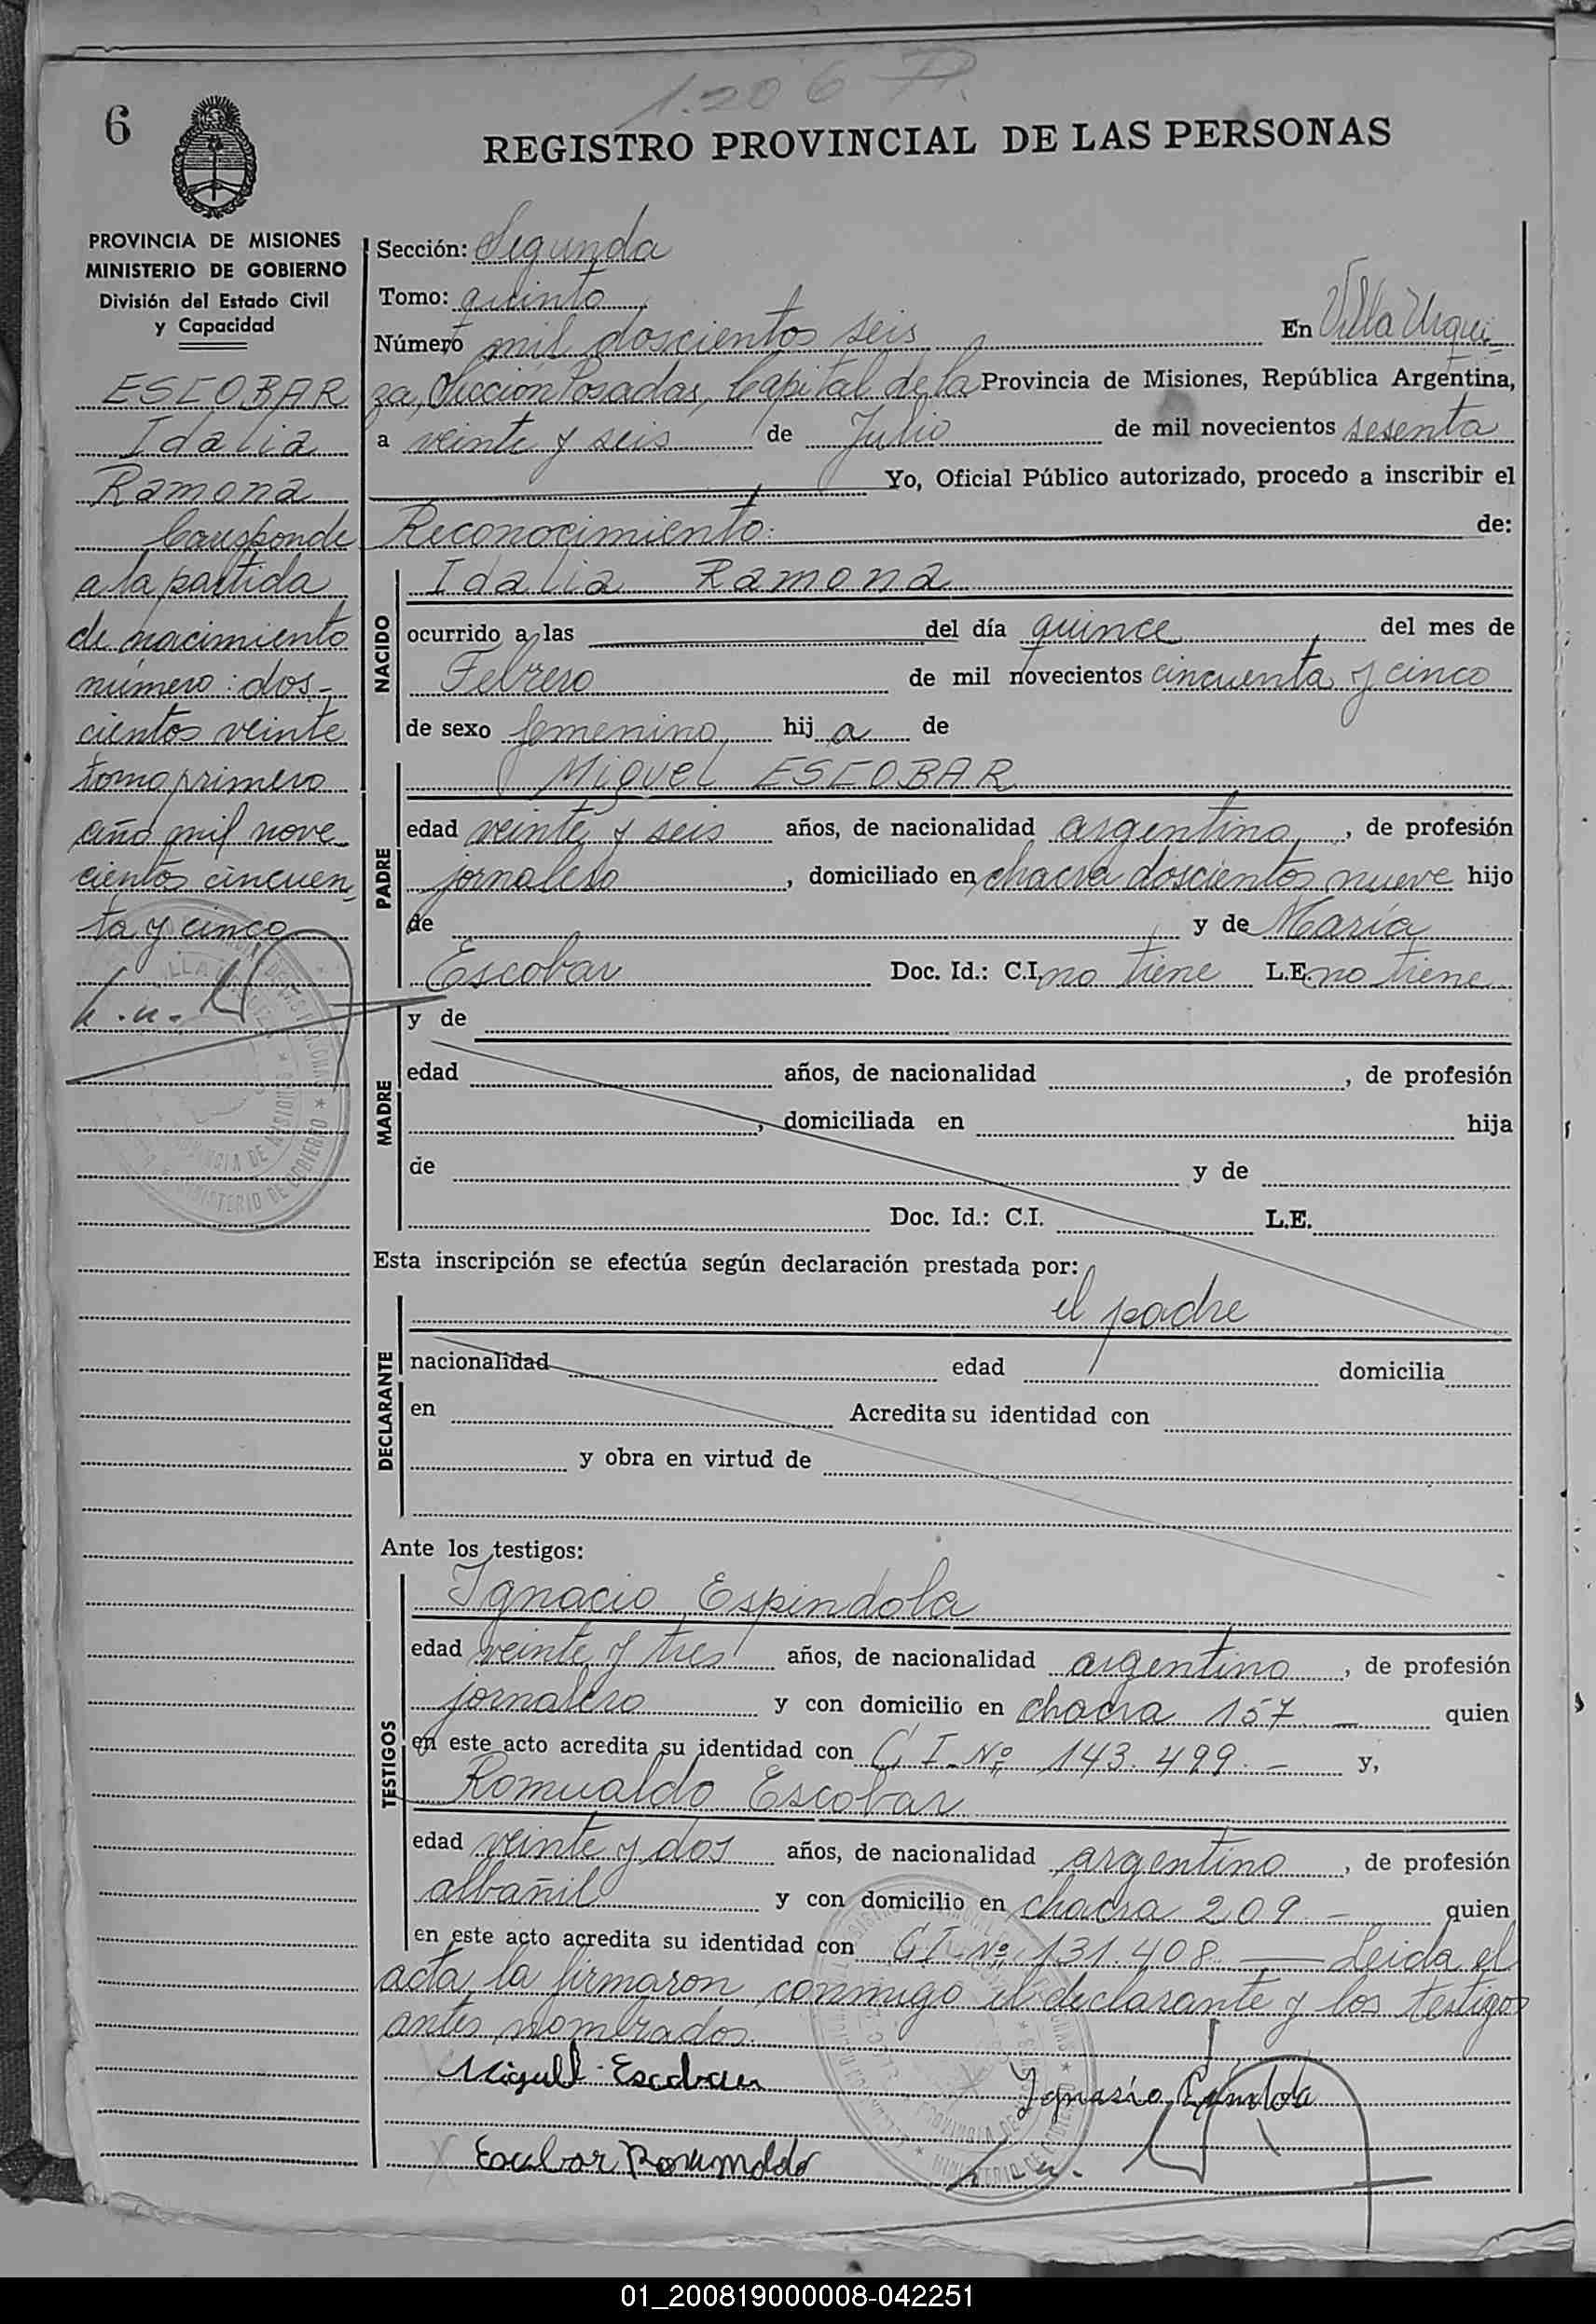 1.206 D.
6
REGISTRO PROVINCIAL DE LAS PERSONAS
PROVINCIA DE MISIONES
MINISTERIO DE GOBIERNO
División del Estado Civil
y Capacidad
ESCOBAR
Idalia
Ramona
Corresponde
a la partida
de nacimiento
número: dos-
cientos veinte
tomo primero
año mil nove
cientos cincuen
ta y cinco
Sección: Segunda
Tomo: quinto
Número mil doscientos seis En Villa Urqui-
za, Sección Posadas, Capital de la Provincia de Misiones, República Argentina,
a veinte y seis de Julio de mil novecientos sesenta
Yo, Oficial Público autorizado, procedo a inscribir el
Reconocimiento: de:
NACIDO
Idalia Ramona
ocurrido a las del día quince del mes de
Febrero de mil novecientos cincuenta y cinco
de sexo femenino hij a de
PADRE
Miguel ESCOBAR
edad veinte y seis años, de nacionalidad argentino, de profesión
jornalero, domiciliado en chacra doscientos nueve hijo
de y de María
Escobar Doc. Id.: C.I. no tiene L.E. no tiene
MADRE
y de
edad años, de nacionalidad , de profesión
, domiciliada en hija
de y de
Doc. Id.: C.I. L.E.
Esta inscripción se efectúa según declaración prestada por:
el padre
DECLARANTE
nacionalidad edad domicilia
en Acredita su identidad con
y obra en virtud de
Ante los testigos:
TESTIGOS
Ignacio Espindola
edad veinte y tres años, de nacionalidad argentino, de profesión
jornalero y con domicilio en chacra 157 - quien
en este acto acredita su identidad con C I - Nº 143.499. - y,
Romualdo Escobar
edad veinte y dos años, de nacionalidad argentino, de profesión
albañil y con domicilio en chacra 209 - quien
en este acto acredita su identidad con C I - Nº 131.408 — Leida el
acta, la firmaron conmigo el declarante y los testigos
antes nombrados.
Miguel Escobar
Escobar Romualdo
01_200819000008-042251